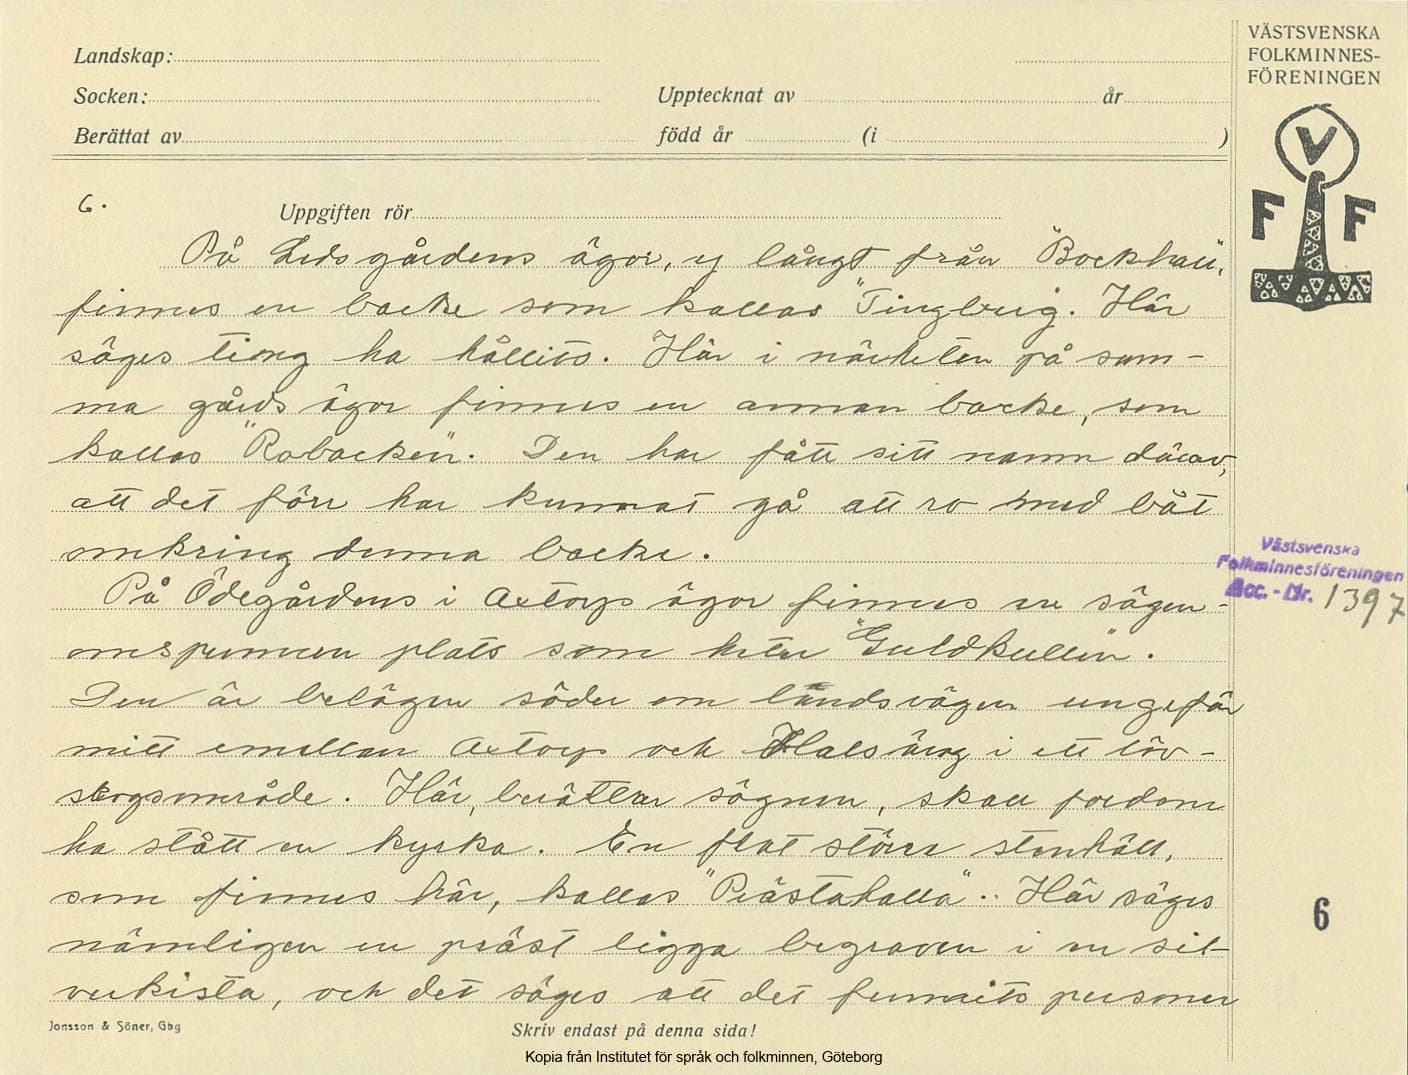 Landskap:
Socken:
Upptecknat av år
Berättat av född år (i )
VÄSTSVENSKA
FOLKMINNES-
FÖRENINGEN
V
F F
6.
Uppgiften rör
På Lidsgårdens ägor, ej långt från "Bockhall",
finnes en backe som kallas "Tingberg. Här
säges ting ha hållits. Här i närheten på sam-
ma gårds ägor finnes en annan backe, som
kallas "Robacken". Den har fått sitt namn därav,
att det förr har kunnat gå att ro med båt
omkring denna backe.
På Ödegårdens i Axtorps ägor finnes en sägen-
omspunnen plats som heter "Guldkullen".
Den är belägen söder om landsvägen ungefär
mitt emellan Axtorp och Halsäng i ett löv-
skogsområde. Här, berättar sägnen, skall fordom
ha stått en kyrka. En flat större stenhäll,
som finnes här, kallas "Prästahalla". Här säges
nämligen en präst ligga begraven i en sil-
verkista, och det säges att det funnits personer
Västsvenska
Folkminnesföreningen
Acc. - Nr. 1397
6
Jonsson & Söner, Gbg
Skriv endast på denna sida!
Kopia från Institutet för språk och folkminnen, Göteborg